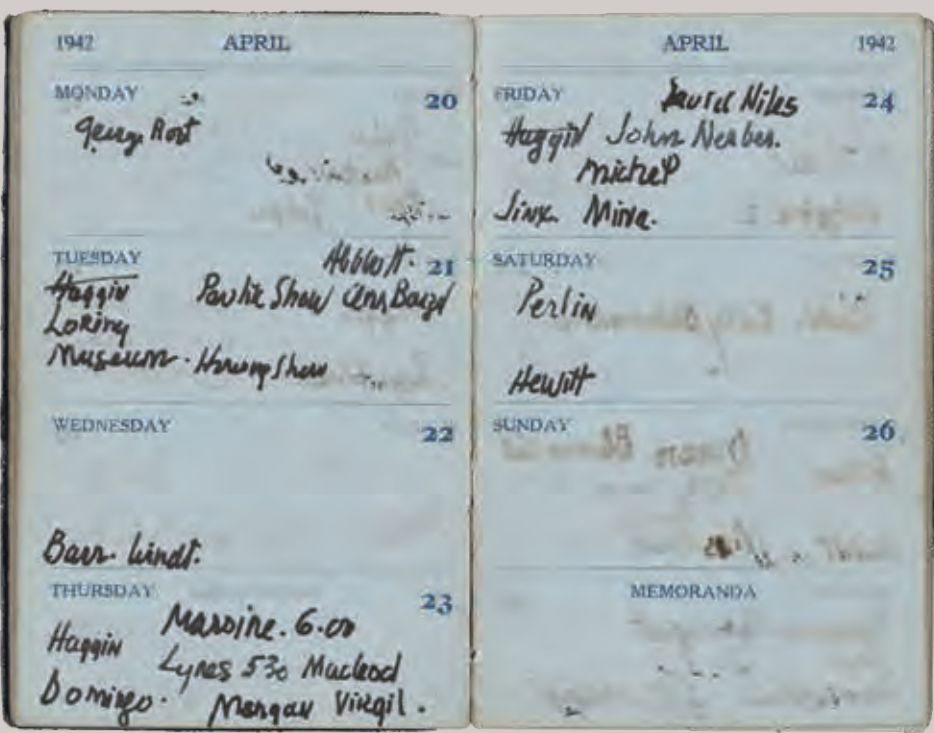 1942 APRIL
MONDAY 20
George
TUESDAY 21
Abbott.
Haggin Pavlik Show Ann Bary
Loring
Museum. Show
WEDNESDAY 22
Barr. Lindt.
THURSDAY 23
Massine. 6.00
Haggin Lynes 530 Macleod
Domingo. Morgan Virgil.
APRIL 1942
FRIDAY 24
David Niles
Haggin John Nerber.
Michel
Jinx. Mina.
SATURDAY 25
Perlin
Hewitt
SUNDAY 26
MEMORANDA